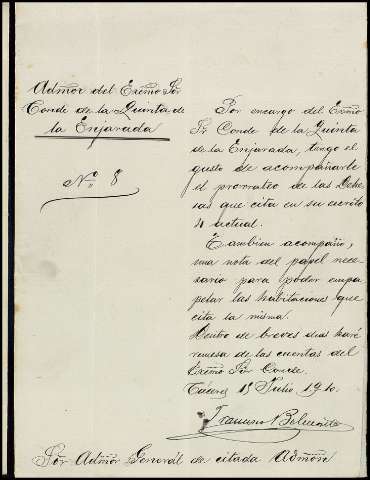 Admor del Exmo Sor
Conde de la Quinta de
la Enjarada
No. 8
Por encargo del Exmo
Sr Conde de la Quinta
de la Enjarada, tengo el
gusto de acompañarle
el prorrateo de las Dehe-
sas que cita en su escrito
4 actual.
Tambien acompaño,
una nota del papel nece-
sario para poder empa-
pelar las habitaciones que
cita la misma.
Dentro de breves dias haré
remesa de las cuentas del
Exmo Sor Conde.
Cáceres 15 Julio 1910.
Francisco
Sor Admor General de citada Admón